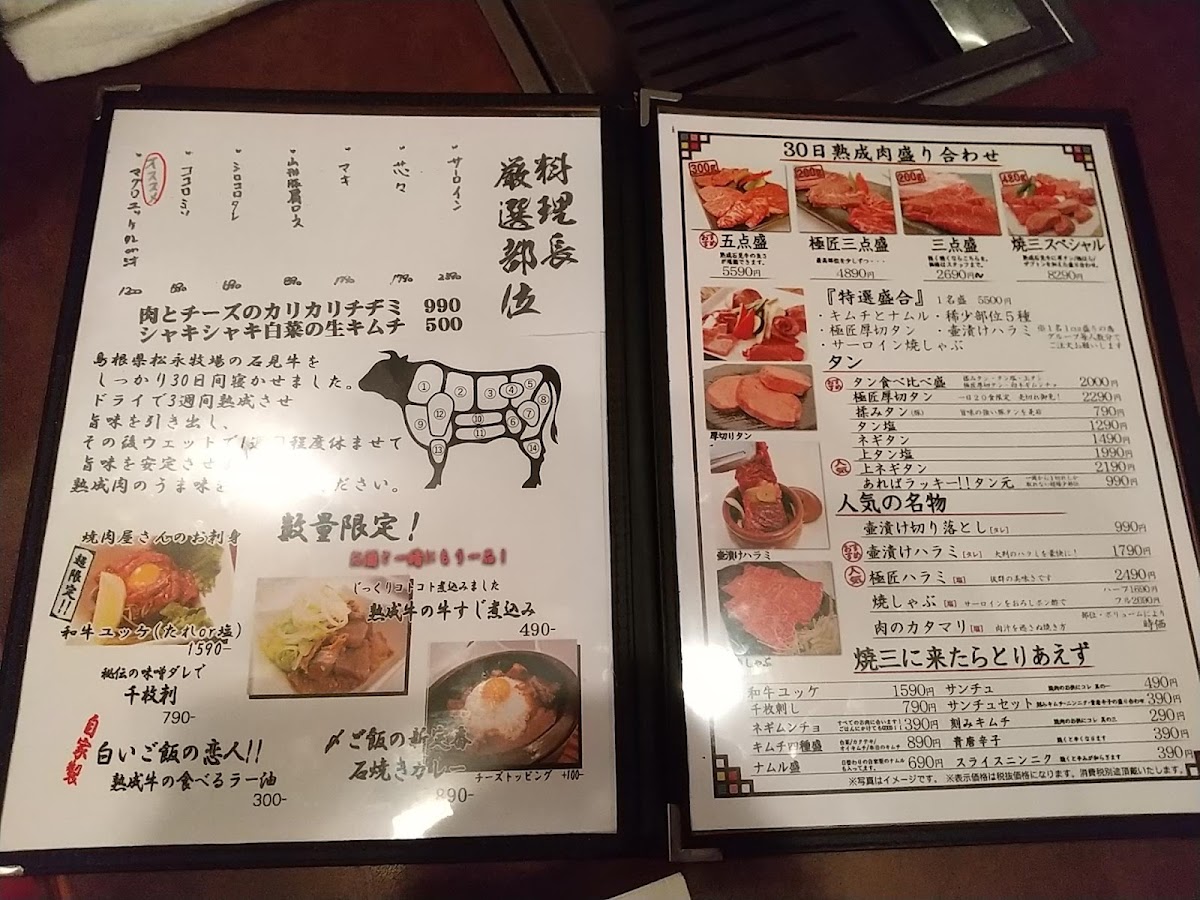 料理長
厳選部位
・サーロイン 2590
・芯々 1790
・マキ 1790
・シロコロタレ
・ココロミソ
オススメ
1200
肉とチーズのカリカリチヂミ 990
シャキシャキ白菜の生キムチ 500
島根県松永牧場の石見牛を
しっかり30日間寝かせました。
ドライで3週間熟成させ
旨味を引き出し、
その後ウェットで1週間程度休ませて
旨味を安定させ
熟成肉のうま味を ください。
① ② ③ ④ ⑤ ⑥ ⑦ ⑧ ⑨ ⑩ ⑪ ⑫ ⑬ ⑭
数量限定!
焼肉屋さんのお刺身
超限定!!
和牛ユッケ(たれor塩)
1590-
秘伝の味噌ダレで
千枚刺
790-
自家製
白いご飯の恋人!!
熟成牛の食べるラー油
300-
じっくりコトコト煮込みました
熟成牛の牛すじ煮込み
490-
〆ご飯の新定番
石焼きカレー
890-
チーズトッピング +100-
30日熟成肉盛り合わせ
300g 200g 200g 480g
五点盛
5590円
極匠三点盛
最高部位を少しずつ・・・
4890円
三点盛
2690円〜
焼三スペシャル
8290円
『特選盛合』 1名盛 5500円
・キムチとナムル ・稀少部位5種
・極匠厚切タン ・壺漬けハラミ
・サーロイン焼しゃぶ
グループ毎人数分で
ご注文お願いします
タン
タン食べ比べ盛 2000円
極匠厚切タン 一日20食限定 売切れ御免! 2290円
揉みタン(豚) 旨味の強い豚タンを是非 790円
タン塩 1290円
ネギタン 1490円
上タン塩 1990円
人気 上ネギタン 2190円
あればラッキー!!タン元 990円
厚切りタン
壺漬けハラミ
しゃぶ
人気の名物
壺漬け切り落とし[タレ] 990円
壺漬けハラミ[タレ] 大判のハラミを豪快に! 1790円
人気 極匠ハラミ[塩] 抜群の美味さです 2490円
焼しゃぶ[塩] サーロインをおろしポン酢で ハーフ1690円 フル2690円
肉のカタマリ[塩] 肉汁を逃さぬ焼き方 部位・ボリュームにより 時価
焼三に来たらとりあえず
和牛ユッケ 1590円
千枚刺し 790円
ネギムンチョ すべてのお肉に合います! 390円
キムチ四種盛 890円
ナムル盛 690円
サンチュ 490円
サンチュセット 390円
刻みキムチ 290円
青唐辛子 390円
スライスニンニク 390円
※写真はイメージです。 ※表示価格は税抜価格になります。消費税別途頂戴いたします。